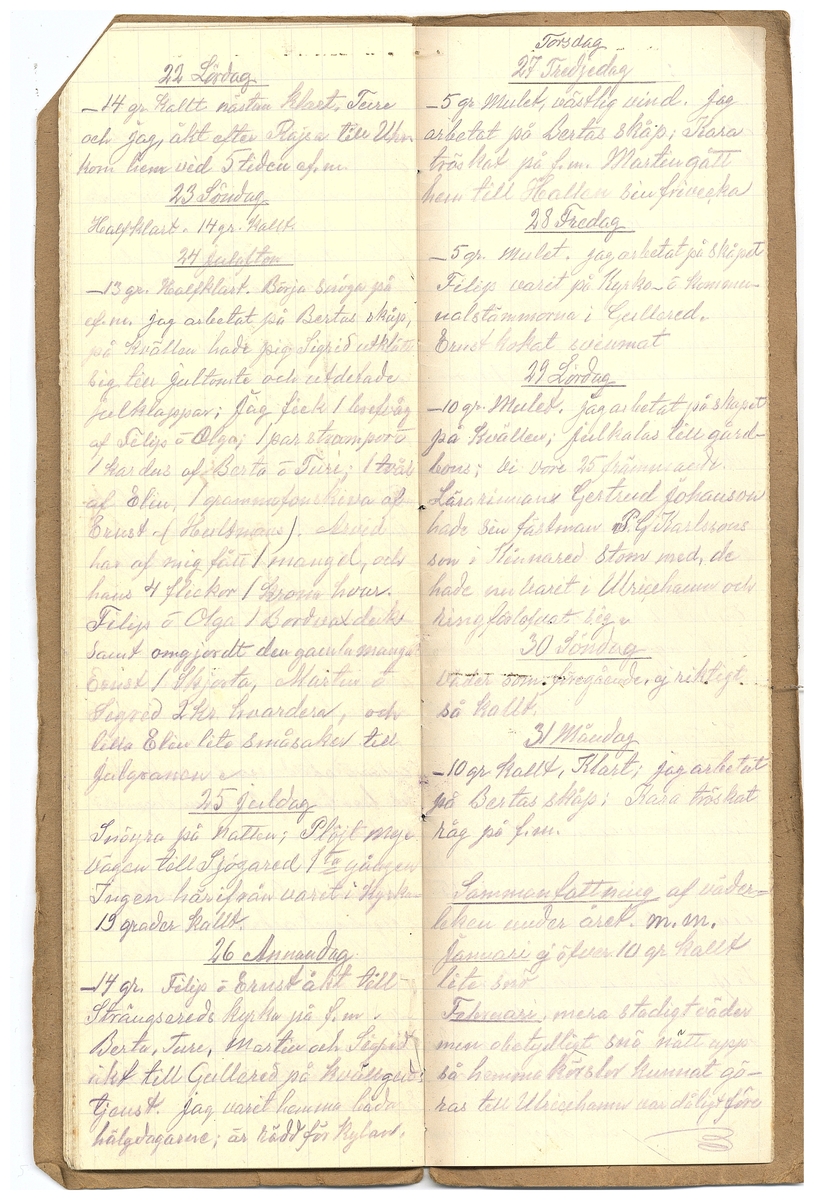 22 Lördag
-14 gr. Kallt nästan Klart, Ture
och jag, åkt efter Rajsa till Uhn
kom hem ved 5 tiden ef.m.
23 Söndag
Halfklart. 14 gr. Kallt.
24 Julafton
-13 gr. Halfklart. Börja snöga på
ef.m. jag arbetat på Bertas skåp,
på Kvällen hade pig Sigrid utklätt
sig till Jultomte och utdelade
julklappar; Jag feck 1 brefvåg
af Filip o Olga; 1 par strumpor o
1 kardus af Berta o Ture; 1 tvål
af Elin, 1 grammofonskiva af
Ernst - (Hultmans). Arvid
har af mig fått 1 mangel, och
hans 4 fleckor 1 Krona hvar.
Filip o Olga 1 Bordvaxduk
samt omgjordt den gamla mangel
Ernst 1 Skjorta, Martin o
Sigred 2 Kr hvardera, och
lilla Elin lite småsaker till
julgranen
25 Juldag
Snöyra på Natten; Plöjt mye
Vägen till Sjögared 1 ta gången
Ingen härifrån varit i Kyrka
19 grader kallt.
26 Annandag
-14 gr. Filip o Ernst åkt till
Strängsereds kyrka på f.m.
Berta, Ture, Martin och Sigrid
åkt till Gullered på kvällguds
tjenst. jag varit hemma båda
hälgdagarne; är rädd för kylan.
Torsdag
27 Tredjedag
-5 gr. Mulet, västlig vind. Jag
arbetat på Bertas skåp; Kara
tröskat på f.m. Martin gått
hem till Hallen sin frivecka
28 Fredag
-5 gr. mulet. jag arbetat på skåpet
Filip varit på Kyrko- o Kommu-
nalstämmorna i Gullered.
Ernst kokat
29 Lördag
-10 gr. Mulet. jag arbetat på skåpet
på Kvällen; julkalas till gård-
bons; Vi vore 25 främmande.
Lärarinnans Gertrud Johanson
hade sin fästman P.G Karlssons
son i Kinnared Stom med, de
hade nu varet i Ulricehamn och
ringförlofvat sig.
30 Söndag
Väder som föregående, ej riktigt
så kallt.
31 Måndag
-10 gr kallt, Klart; jag arbetat
på Bertas skåp; Kara tröskat
råg på f.m.
Sammanfattning af väder-
leken under året. m.m.
Januari ej öfver 10 gr kallt
lite snö
Februari. mera stadigt väder
men obetydligt snö nätt upp
så hemma körslor kunnat gö-
ras till Ulricehamn var dåligt före